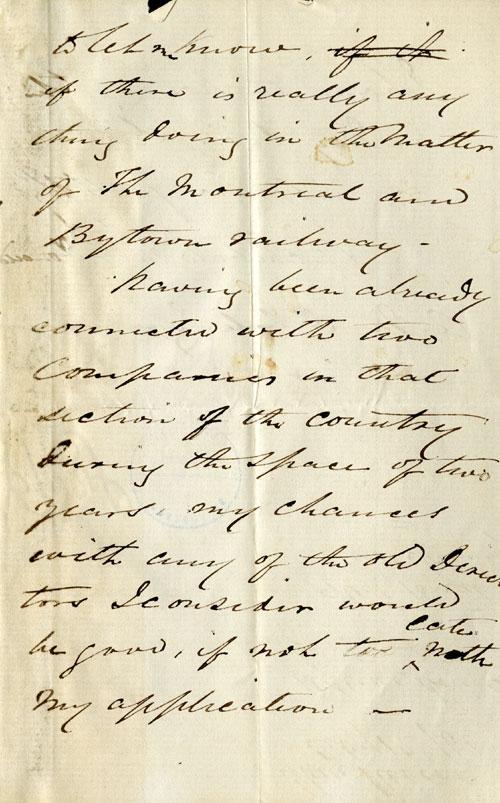 to let me know, if it
if there is really any
thing doing in the Matter
of The Montreal and
Bytown railway -
having been already
connected with two
Companies in that
section of the country
during the space of two
years, my chances
with any of the old Direc
tors I consider would
late
be good, if not too with
my application —